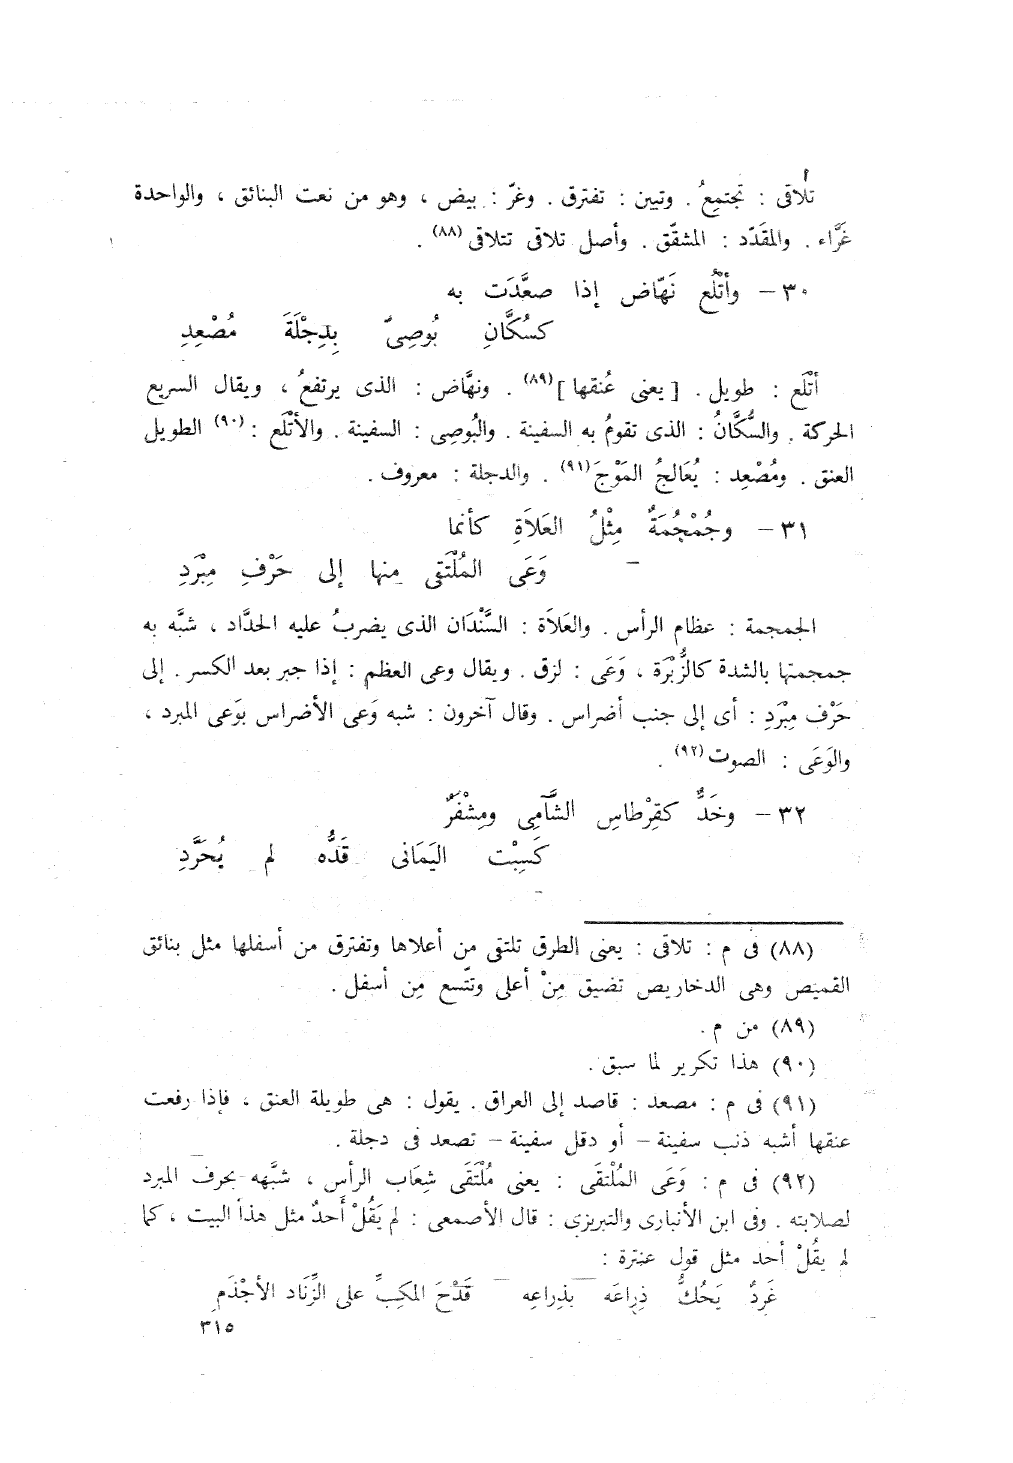 تلاقى : تجتمِعُ . وتبين : تفترق . وغرّ : بيض ، وهو من نعت البنائق ، والواحدة
غَرَّاء . والمقَدّد : المشقّق . وأصل تلاقى تتلاقى (٨٨) .
٣٠ – وأَتْلُع نَهّاض إذا صعَّدَت به
كسُكَّانِ بُوصِىّ بِدِجْلَةَ مُصْعِدِ
أتْلَع : طويل . [ يعنى عُنقها ](٨٩) . ونهَّاض : الذى يرتفعُ ، ويقال السريع
الحركة . والسُّكَّانُ : الذى تقومُ به السفينة . والبُوصِى : السفينة . والأتْلَع :(٩٠) الطويل
العنق . ومُصْعِد : يُعَالجُ المَوْجَ(٩١) . والدجلة : معروف .
٣١ – وجُمْجُمَةٌ مِثْلُ العَلاَةِ كأنما
وَعَى المُلْتَقى منها إلى حَرْفِ مِبْرَدِ
الجمجمة : عظام الرأس . والعَلاَة : السَّنْدَان الذى يضربُ عليه الحدَّاد ، شبَّه به
جمجمتها بالشدة كالزُّبْرَة ، وَعَى : لزق . ويقال وعى العظم : إذا جبر بعد الكسر . إلى
حَرْف مِبْرَدِ : أى إلى جنب أضراس . وقال آخرون : شبه وَعى الأضراس بوَعى المبرد ،
والوَعَى : الصوت(٩٢) .
٣٢ – وخَدٌّ كقِرْطاسِ الشَّآمِى ومِشْفَرٌ
كَسِبْت اليَمَانى قَدُّه لم يُحَرَّدِ
(٨٨) فى م : تلاقى : يعنى الطرق تلتقى من أعلاها وتفترق من أسفلها مثل بنائق
القميص وهى الدخاريص تضيق مِنْ أعلى وتتّسع مِن أسفل .
(٨٩) من م .
(٩٠) هذا تكرير لما سبق .
(٩١) فى م : مصعد : قاصد إلى العراق . يقول : هى طويلة العنق ، فإذا رفعت
عنقها أشبه ذنب سفينة – أو دقل سفينة – تصعد فى دجلة .
(٩٢) فى م : وَعَى المُلْتقَى : يعنى مُلْتَقَى شِعَاب الرأس ، شبَّهه بحرف المبرد
لصلابته . وفى ابن الأنبارى والتبريزى : قال الأصمعى : لم يَقُلْ أَحدٌ مثل هذا البيت ، كما
لم يقُلْ أحد مثل قول عنترة :
غَرِدٌ يَحُكُّ ذِراعَه بذِراعِه قَدْحَ المكبِّ على الزِّنَاد الأجْذَمِ
٣١٥